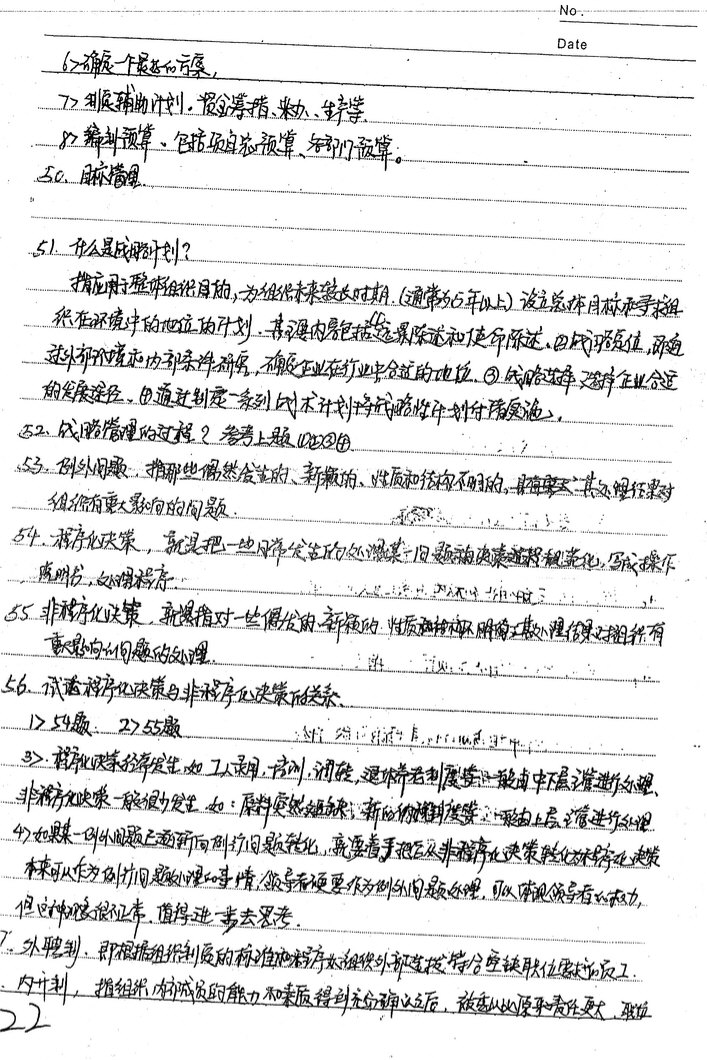 No.
Date
6> 确定一个最好的方案,
7> 制定辅助计划。资金筹措、来办、生产等.
8> 编制预算、包括项目总预算、各部门预算。
50. 目标管理.
51. 什么是战略计划?
指应用于整体组织目的,为组织未来较长时期(通常为5年以上)设立总体目标和寻求组
织在环境中的地位的计划.其主要内容包括 远景陈述和使命陈述、②战略定位,即通
过外部环境和内部条件研究,确定企业在行业中合适的地位.③战略选择 选择企业合适
的发展途径.④通过制定一系列战术计划将战略性计划付诸实施.
52. 战略管理的过程? 参考上题①②③④.
53. 例外问题,指那些偶然发生的、新颖的、性质和结构不明的,其处理结果对
组织有重大影响的问题.
54. 程序化决策,就是把一些日常发生的处理某一问题的决策 规范化,写成操作
说明书,处理程序.
55. 非程序化决策,就是指对一些偶发的、新颖的、性质和结构不明的 处理结果对组织有
重大影响的问题的处理.
56. 试述程序化决策与非程序化决策的关系.
1> 54题. 2> 55题
3>. 程序化决策经常发生,如工人录用,培训,调转,退休养老制度等 一般由中下层主管进行处理、
非程序化决策一般很少发生,如:原料突然短缺,新的 制度等 一般由上层主管进行处理
4> 如果某一例外问题已逐渐向例行问题转化,就要着手把它从非程序化决策转化为程序化决策
本来可以作为例行问题处理的事情,领导者硬要作为例外问题处理,可以体现领导者的权力,
但这种现象很不正常,值得进一步去思考.
7. 外聘制、即根据组织制定的标准和程序从组织外部选拔符合空缺职位要求的员工.
. 内升制,指组织内部成员的能力和素质得到充分确认之后,被委以比原来责任更大、职位
22